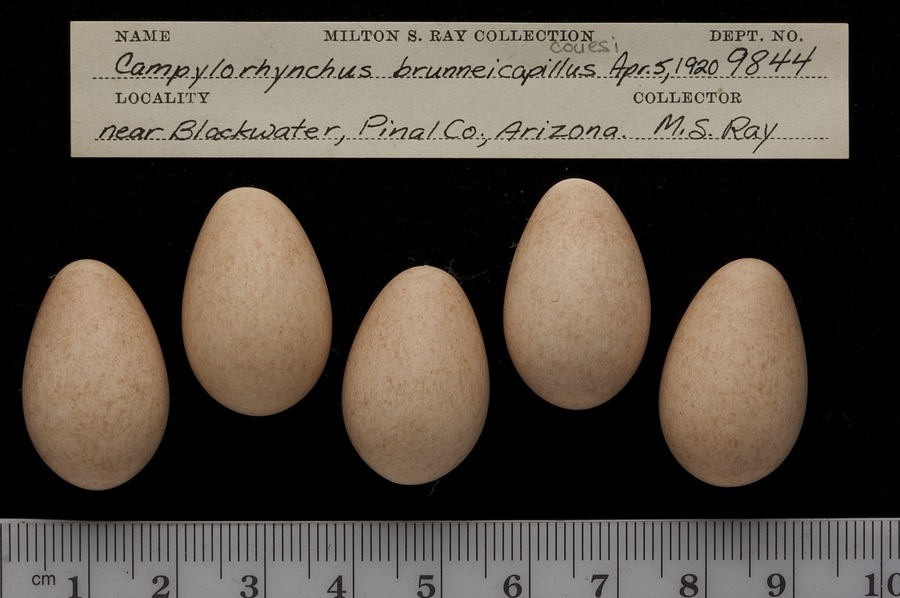 NAME MILTON S. RAY COLLECTION DEPT. NO.
couesi
Campylorhynchus brunneicapillus Apr. 5, 1920 9844
LOCALITY COLLECTOR
near Blackwater, Pinal Co., Arizona. M. S. Ray
cm 1 2 3 4 5 6 7 8 9 10